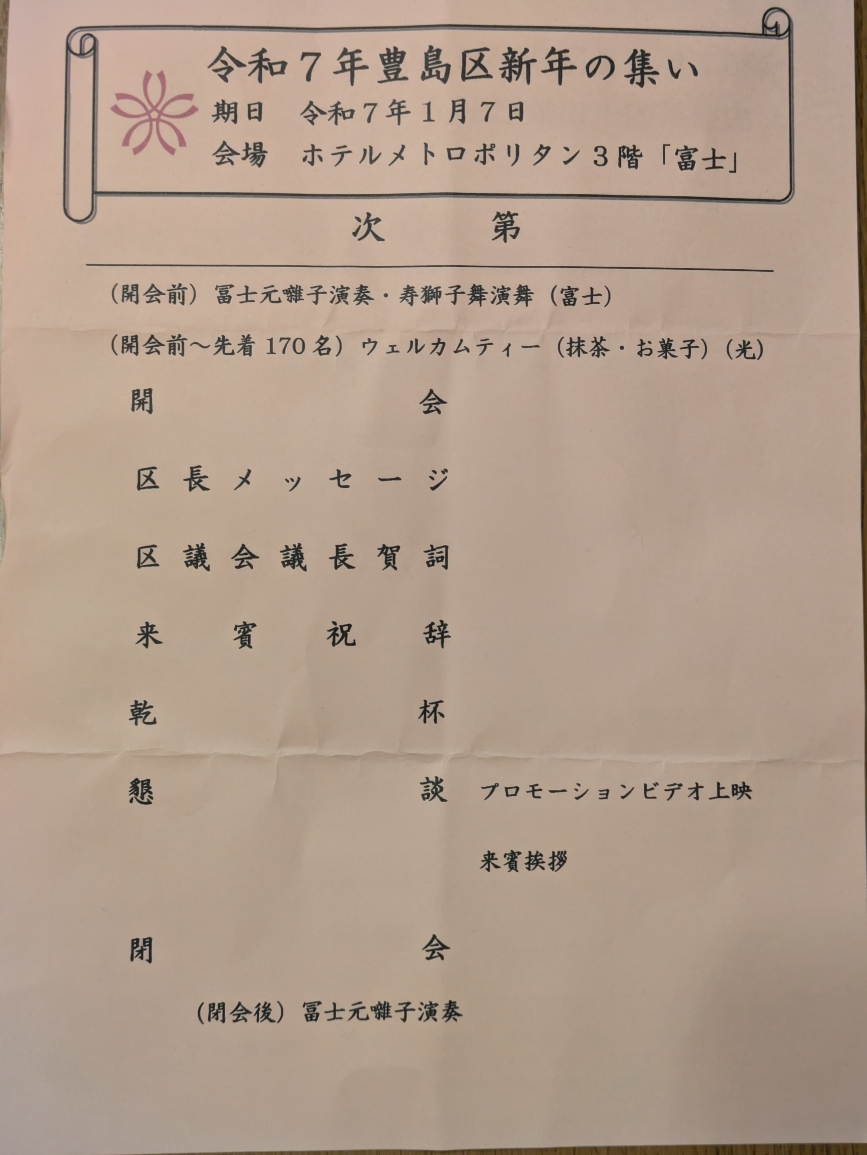 令和７年豊島区新年の集い
期日　令和７年１月７日
会場　ホテルメトロポリタン３階「富士」
次　第
（開会前）冨士元囃子演奏・寿獅子舞演舞（富士）
（開会前～先着 170 名）ウェルカムティー（抹茶・お菓子）（光）
開　会
区長メッセージ
区議会議長賀詞
来賓祝辞
乾　杯
懇　談　プロモーションビデオ上映
来賓挨拶
閉　会
（閉会後）冨士元囃子演奏